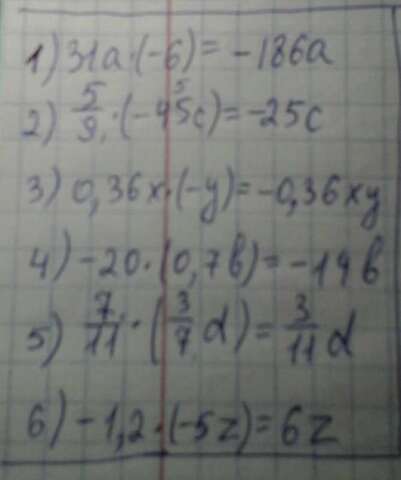 1) 31a·(-6)=-186a
2) 5/9·(-45c)=-25c
3) 0,36x·(-y)=-0,36xy
4) -20·(0,7b)=-14b
5) 7/11·(3/7 d)=3/11 d
6) -1,2·(-5z)=6z